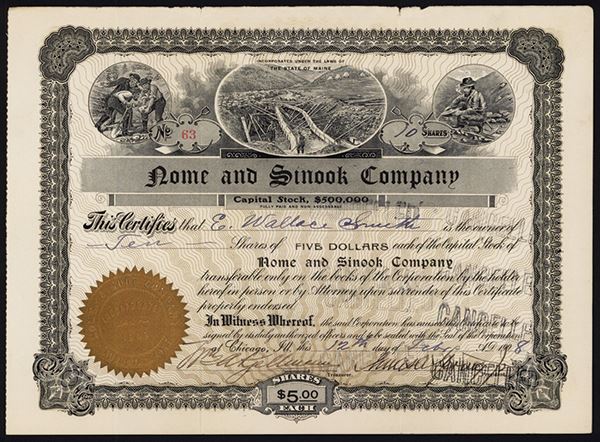 INCORPORATED UNDER THE LAWS OF
THE STATE OF MAINE
No 63
10 SHARES
Nome and Sinook Company
Capital Stock, $500,000
FULLY PAID AND NON-ASSESSABLE
This Certifies that E. Wallace is the owner of
Ten Shares of FIVE DOLLARS each of the Capital Stock of
Nome and Sinook Company
transferable only on the books of the Corporation by the holder
hereof in person or by Attorney upon surrender of this Certificate
properly endorsed.
In Witness Whereof, the said Corporation has caused this Certificate to be
signed by its duly authorized officers and to be sealed with the Seal of the Corporation
at Chicago, Ill. this day of A.D. 1908
Treasurer.
CANCELLED
CANCELLED
SHARES
$5.00
EACH